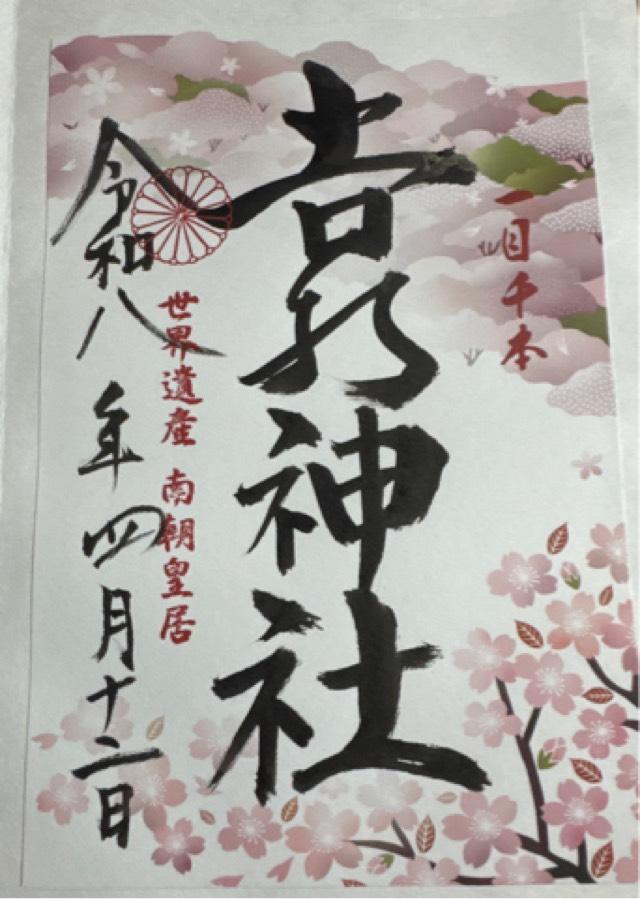 一目千本
吉水神社
世界遺産 南朝皇居
令和八年四月十二日